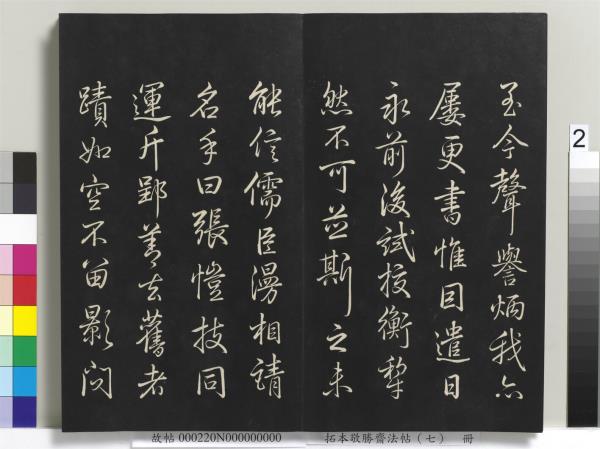 至今聲譽炳我亦
屢更書惟因遣日
永前後試挍衡犂
然不可並斯之未
能信儒臣漫相請
名手曰張愷技同
運斤郢著去舊者
蹟如空不留影問
故帖 000220N000000000 拓本敬勝齋法帖（七） 冊
2